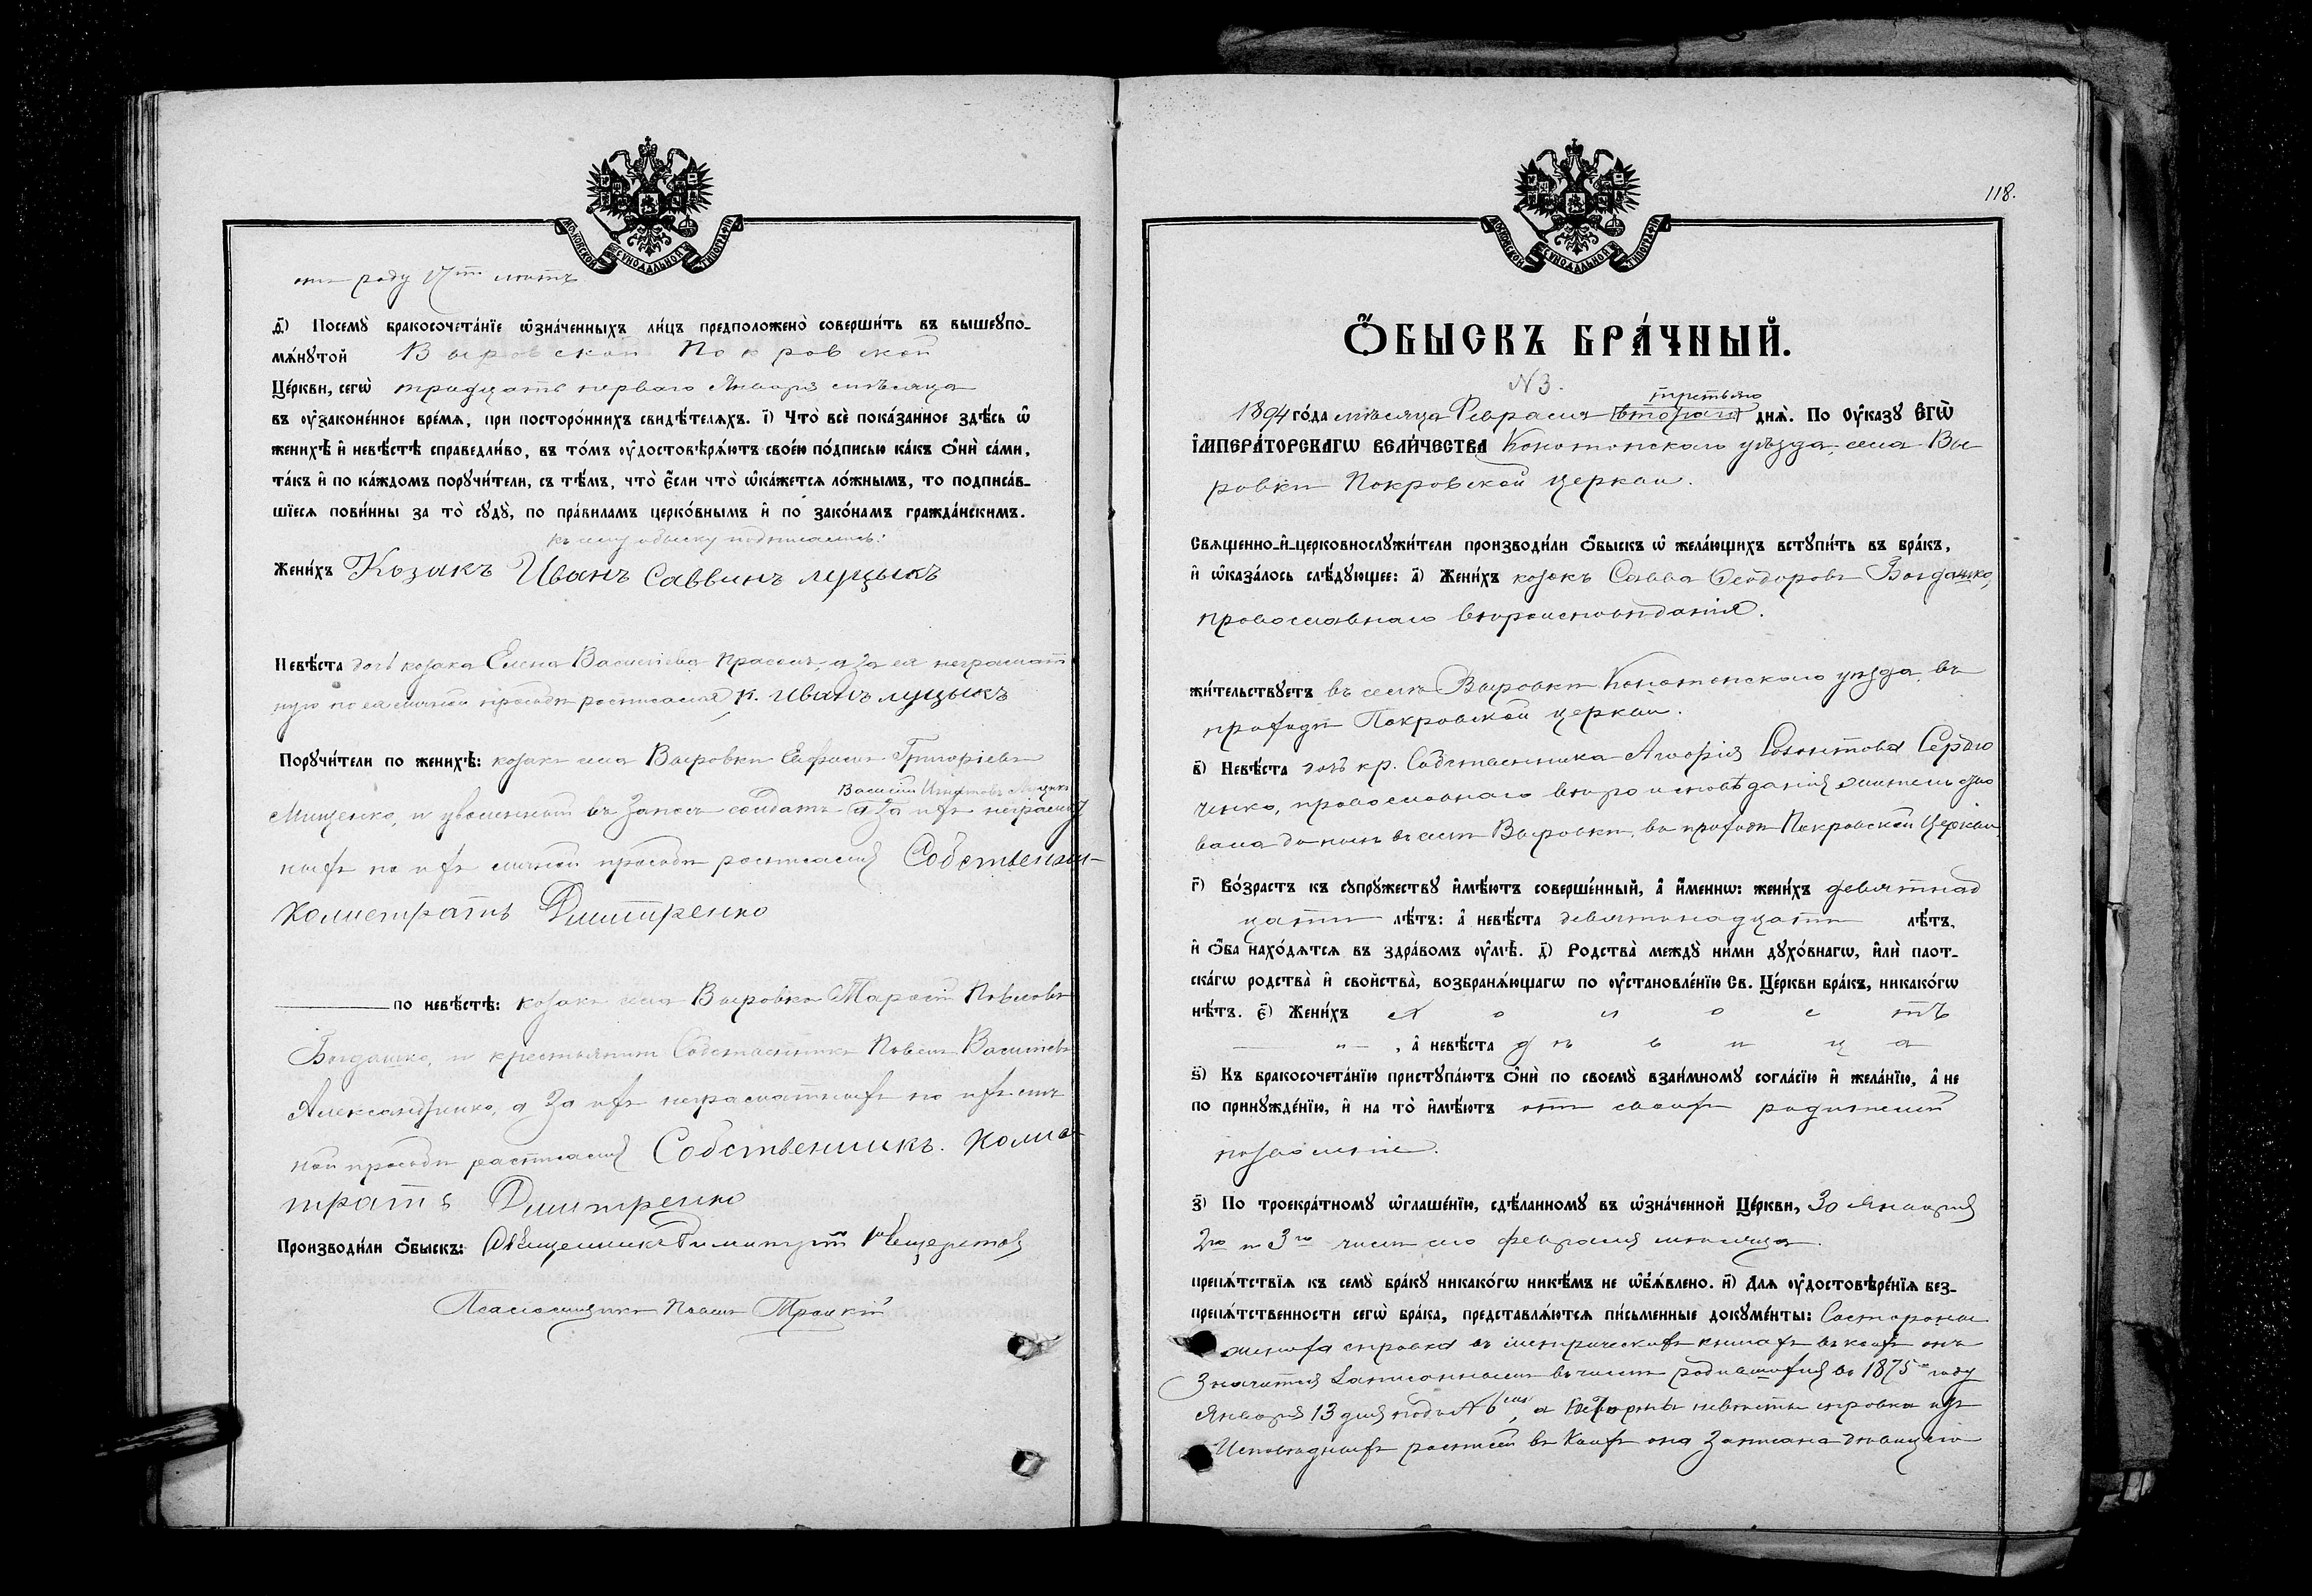 МОСКОВСКОЙ СѴНОДАЛЬНОЙ ТИПОГРАФІИ
роду 17ть лѣтъ
д҃) Посемꙋ̀ бракосочета́нїе ѡ҆зна́ченныхъ ли́цъ предположено̀ соверши́ть въ вышеꙋпо-
мѧ́нꙋтой Выровской Покровской
Це́ркви, сегѡ̀ тридцать перваго Января мѣсяца
въ ᲂу҆законе́нное вре́мѧ, при посторо́ннихъ свидѣ́телѧхъ. і҃) Что̀ всѐ пока́занное здѣ́сь ѡ҆
женихѣ̀ и҆ невѣ́стѣ справедли́во, въ то́мъ ᲂу҆достовѣрѧ́ютъ свое́ю по́дписью ка́къ ѻ҆нѝ са́ми,
та́къ и҆ по ка́ждомъ порꙋчи́тели, съ тѣ́мъ, что̀ є҆́сли что̀ ѡ҆ка́жетсѧ ло́жнымъ, то подписа́в-
шїесѧ пови́нны за то̀ сꙋдꙋ̀, по пра́виламъ церко́внымъ и҆ по зако́намъ гражда́нскимъ.
къ сему обыску подписались:
Жени́хъ Козакъ Иванъ Саввинъ Луцыкъ
Невѣ́ста дочь козака Елена Васильева Прасолъ, а за ея неграмат
ную по ея личной просьбѣ росписался К. Иванъ луцыкъ
Порꙋчи́тели по женихѣ̀: козакъ села Выровки Григоріевъ
Василій Игнатовъ
Мищенко, и уволенный въ Запасъ солдатъ а за ихъ неграмат
ныхъ по ихъ личной просьбѣ росписался Собственни-
Калистратъ Дмитренко
по невѣ́стѣ: козакъ села Выровки Тарасій Павловъ
Богдашко, и крестьянинъ Собственникъ Павелъ Васильевъ
Александренко, а за ихъ неграматныхъ по ихъ лич
ной просьбѣ росписался Собственникъ. Калис
тратъ Дмитренко
Производи́ли ѻ҆́быскъ: Священникъ Димитрій
Псаломщикъ Павелъ Троцкій
118.
МОСКОВСКОЙ СѴНОДАЛЬНОЙ ТИПОГРАФІИ
Ѻ҆́БЫСКЪ БРА́ЧНЫЙ.
N 3.
третьяго
1894 го́да мѣсяца Февраля (втораго) днѧ̀. По Оу҆ка́зꙋ ЕГѠ̀
І҆МПЕРА́ТОРСКАГѠ ВЕЛИ́ЧЕСТВА Конотопскаго уѣзда, села Вы
ровки Покровской церкви.
Свѧщенно-и҆-церковнослꙋжи́тели производи́ли ѻ҆́быскъ ѡ҆ жела́ющихъ встꙋпи́ть въ бра́къ,
и҆ ѡ҆каза́лось слѣ́дꙋющее: а҃) Жени́хъ козакъ Савва Ѳеодоровъ Богдашко,
православнаго вѣроисповѣданія.
жи́тельствꙋетъ въ селѣ Выровкѣ Конотопскаго уѣзда, въ
приходѣ Покровской церкви.
в҃) Невѣ́ста дочь кр. Собственника
ченко, православнаго вѣроисповѣданія жительство
вала до нынѣ въ селѣ Выровкѣ, въ приходѣ Покровской Церкви
г҃) Во́зрастъ къ сꙋпрꙋ́жествꙋ и҆мѣ́ютъ соверше́нный, а҆ и҆́меннѡ: жени́хъ девятнад
цати лѣ́тъ: а҆ невѣ́ста девятнадцати лѣ́тъ,
и҆ ѻ҆́ба нахо́дѧтсѧ въ здра́вомъ ᲂу҆мѣ̀. д҃) Родства̀ междꙋ̀ ни́ми дꙋхо́внагѡ, и҆лѝ плот-
ска́гѡ родства̀ и҆ свойства̀, возбранѧ́ющагѡ по ᲂу҆становле́нїю Св. Це́ркви бра́къ, никако́гѡ
нѣ́тъ. є҃) Жени́хъ холостъ
, а҆ невѣ́ста дѣвица
ѕ҃) Къ бракосочета́нїю пристꙋпа́ютъ ѻ҆нѝ по своемꙋ̀ взаи́мномꙋ согла́сїю и҆ жела́нїю, а҆ не
по принꙋжде́нїю, и҆ на то̀ и҆мѣ́ютъ отъ своихъ родителей
позволеніе.
з҃) По троекра́тномꙋ ѡ҆глаше́нїю, сдѣ́ланномꙋ въ ѡ҆зна́ченной Це́ркви, 30 Января
2го и 3го числъ февраля мѣсяца.
препѧ́тствїѧ къ семꙋ̀ бра́кꙋ никако́гѡ никѣ́мъ не ѡ҆б̾ѧ́влено. и҃) Длѧ ᲂу҆достовѣре́нїѧ без-
препѧ́тственности сегѡ̀ бра́ка, представлѧ́ютсѧ пи́сьменные докꙋме́нты: Состороны
жениха справка въ метрическихъ книгахъ въ коихъ онъ
Значится Записаннымъ въ числѣ родившихся въ 1875 году
Января 13 дня подъ N 6, а невѣсты справка изъ
Исповѣдныхъ росписей въ Коихъ она Записана